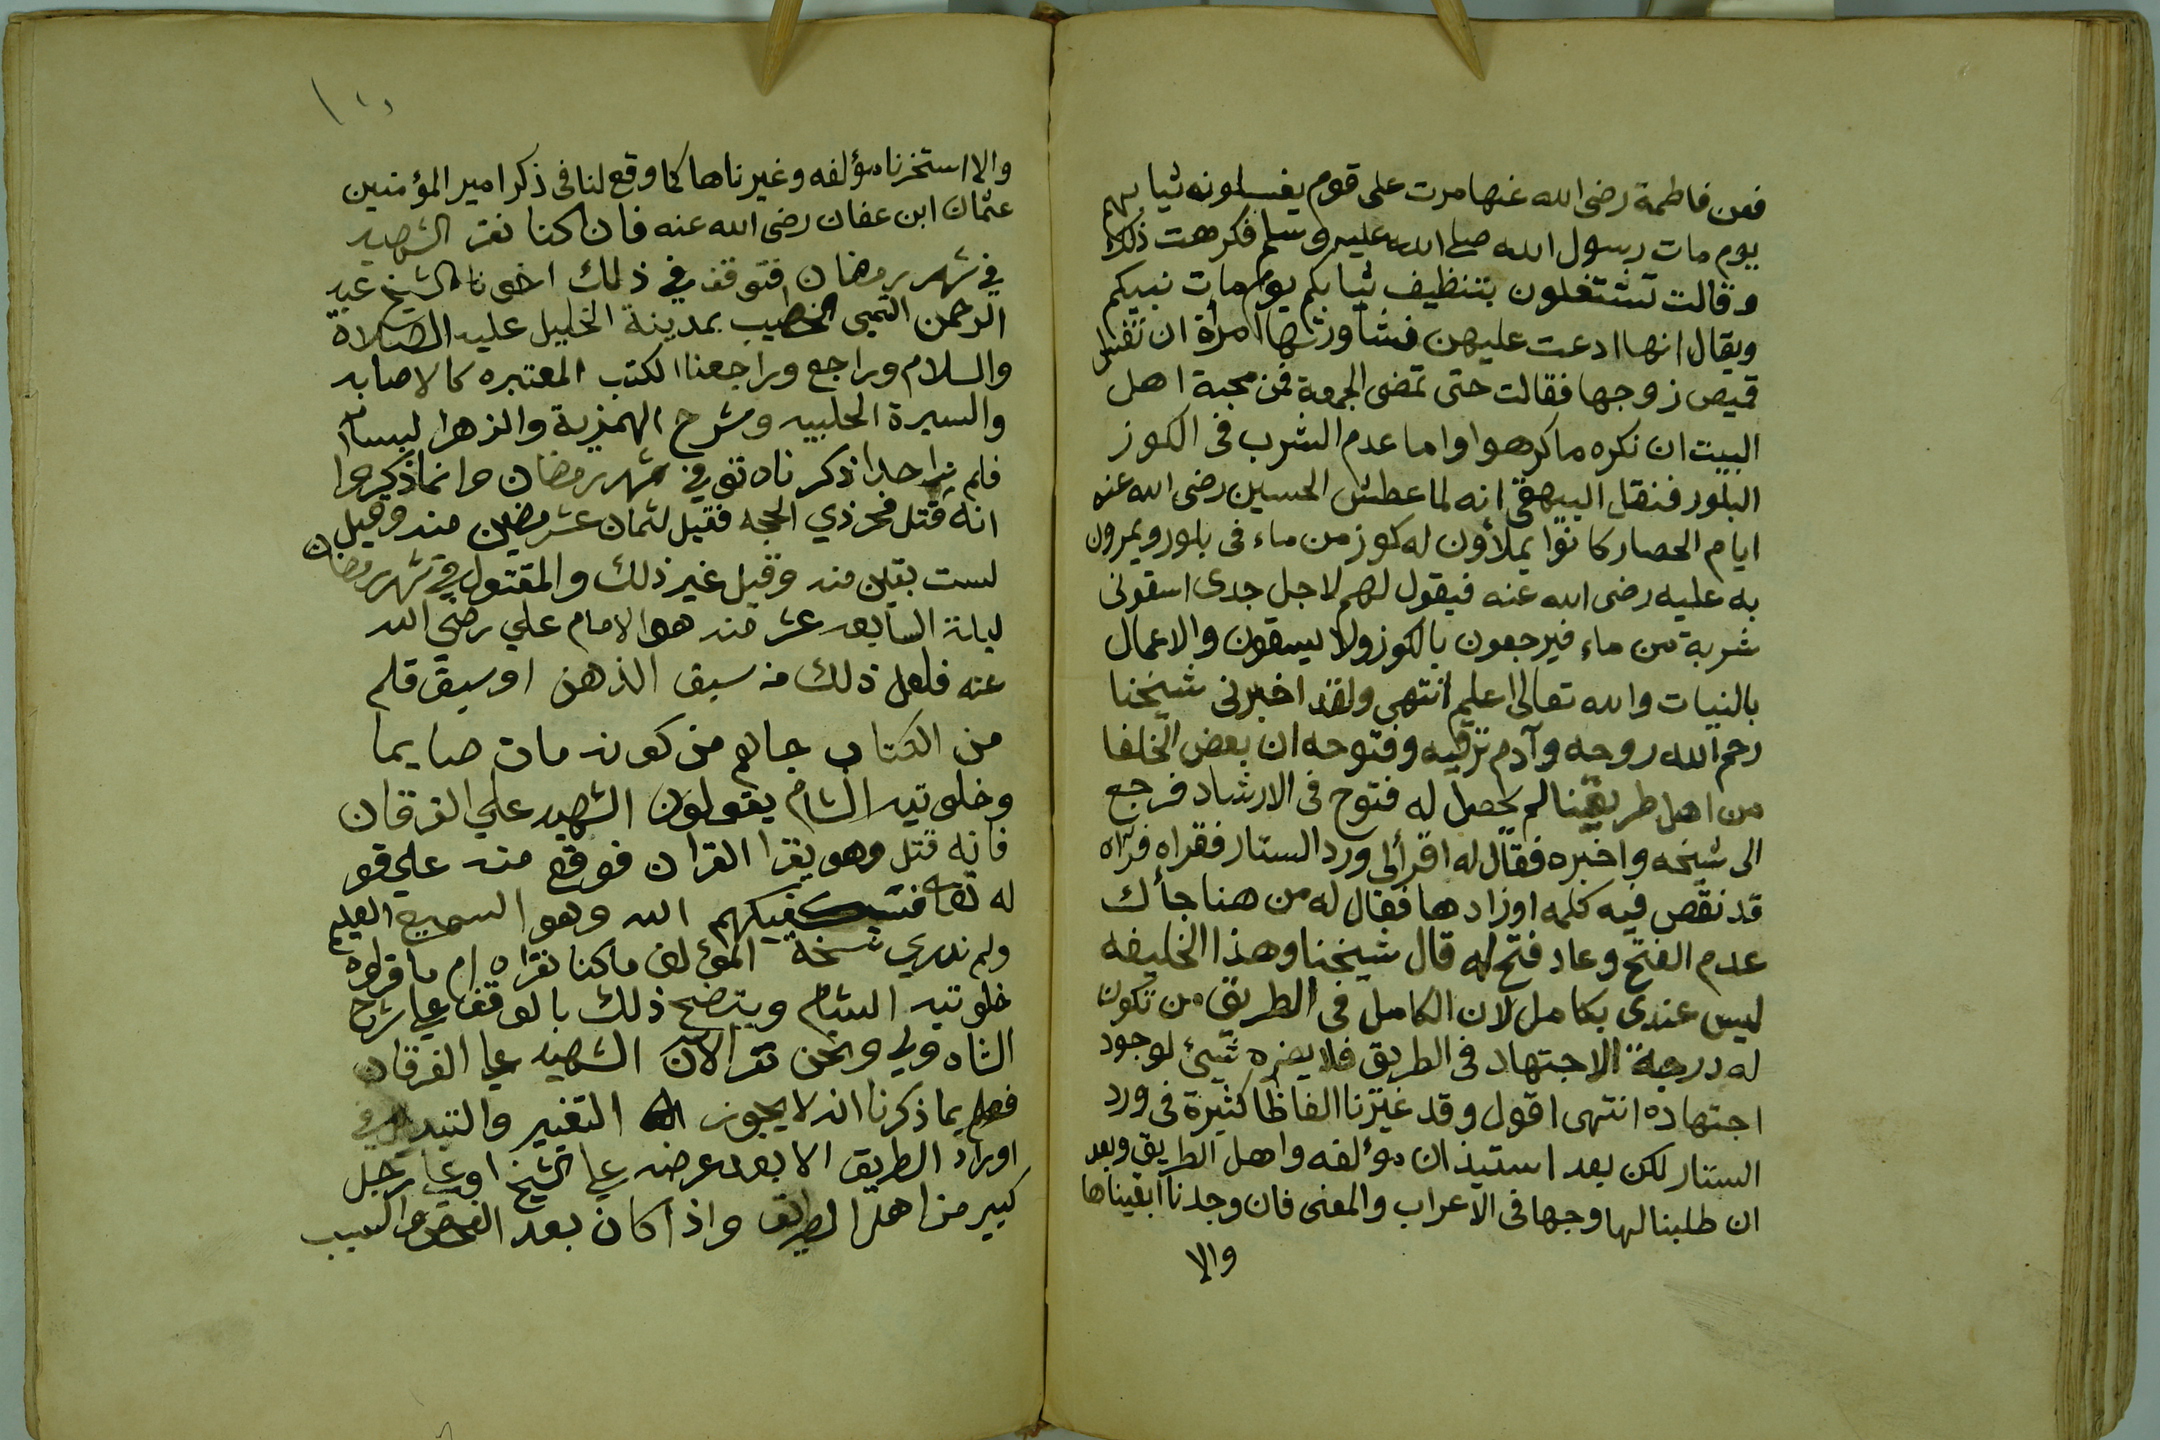 فعن فاطمة رضى الله عنها مرت على قوم يغسلونه ثيابهم
يوم مات رسول الله صلى الله عليه وسلم فكرهت ذلك
وقالت تشتغلون بتنظيف ثيابكم يوم مات نبيكم
ويقال انها ادعت عليهن فشاورتها امرأة ان تغسل
قميص زوجها فقالت حتى تمضى الجمعة فمن محبة اهل
البيت ان نكره ما كرهوا واما عدم الشرب فى الكوز
البلور فنقل البيهقى انه لما عطش الحسين رضى الله عنه
ايام الحصار كانوا يملأون له كوز من ماء فى بلور ويمرون
به عليه رضى الله عنه فيقول لهم لاجل جدى اسقونى
شربة من ماء فيرجعون بالكوز ولا يسقون والاعمال
بالنيات والله تعالى اعلم انتهى ولقد اخبرنى شيخنا
رحم الله روحه وآدم ترقيه وفتوحه ان بعض الخلفا
من اهل طريقتنا لم يحصل له فتوح فى الارشاد فرجع
الى شيخه واخبره فقال له اقرألى ورد الستار فقراه فرآه
قد نقص فيه كلمه اوزادها فقال له من هنا جأك
عدم الفتح وعاد فتح له قال شيخنا وهذا الخليفه
ليس عندى بكامل لان الكامل فى الطريق من تكون
له درجة الاجتهاد فى الطريق فلا يضره شيئ لوجود
اجتهاده انتهى اقول وقد غيرنا الفاظا كثيرة فى ورد
الستار لكن بعد استيذان مؤلفه واهل الطريق وبعد
ان طلبنا لها وجها فى الاعراب والمعنى فان وجدنا ابقيناها
والا
والا استخرنا مؤلفه وغيرناها كما وقع لنا فى ذكر امير المؤمنين
عثمان ابن عفان رضى الله عنه فان كنا نقر الشهيد
في شهر رمضان فتوقف في ذلك اخونا الشيخ عبد
الرحمن التمى الخطيب بمدينة الخليل عليه الصلاة
والسلام وراجع وراجعنا الكتب المعتبره كالاصابه
والسيرة الحلبيه وشرح الهمزية والزهرا لبسام
فلم نرا حدا ذكر ناه توفي في شهر رمضان وانما ذكروا
انه قتل في ذي الحجه فقيل لثمان عشر مضين منه وقيل
لست بقين منه وقيل غير ذلك والمقتول في شهر رمضان
ليلة السابعه عشر منه هو الامام علي رضي الله
عنه فلعل ذلك من سبق الذهن او سبق قلم
من الكتاب جاهم من كونه مات صايما
وخلوتيه الشام يقولون الشهيد علي الفرقان
فانه قتل وهو يقرا القران فوقع منه علي قو
له تعا فسيكفيكهم الله وهو السميع العليم
ولم ندري نسخة المؤلف ما كنا نقراه ام ما قراوه
خلوتيه الشام ويتضح ذلك بالوقف علي شرح
الشاه ولي ونحن نقر الان الشهيد علي الفرقان
بما ذكرنا انه لا يجوز التغيير والتبديل في
اوراد الطريق الا بعد عرضه علي الشيخ او علي رجل
كبير من اهل الطريق واذا كان بعد الفحص والسبب